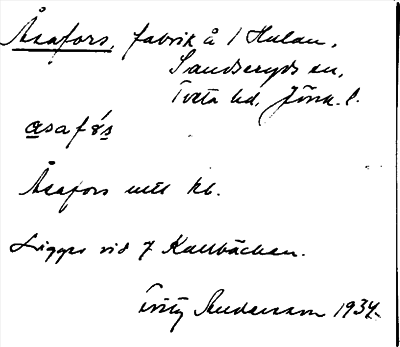 Åsafors, fabrik å 1 Hulan,
Sandseryds sn,
Tveta hd, Jönk. l.
asafo̊s
Åsafors uttl kb.
Ligger vid 7 Kallbäcken.
Fritz Andersson 1934.